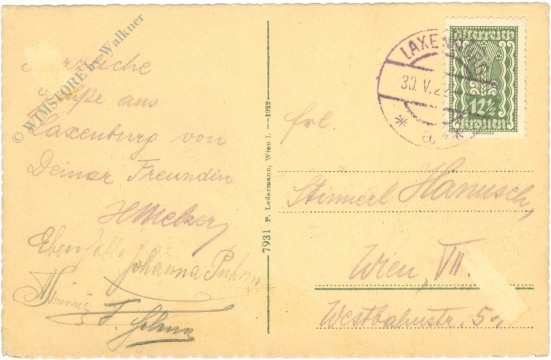 © WIMSTORE by Walkner
Herzliche
Grüße aus
Laxenburg von
Deiner Freundin
Ebenfalls Johanna
7931 P. Ledermann, Wien I. —1922
LAXENBURG
30.V.22
* a *
Österreich
12½
Kronen
Frl.
Hanusch,
Wien, VII.
Westbahnstr. 5